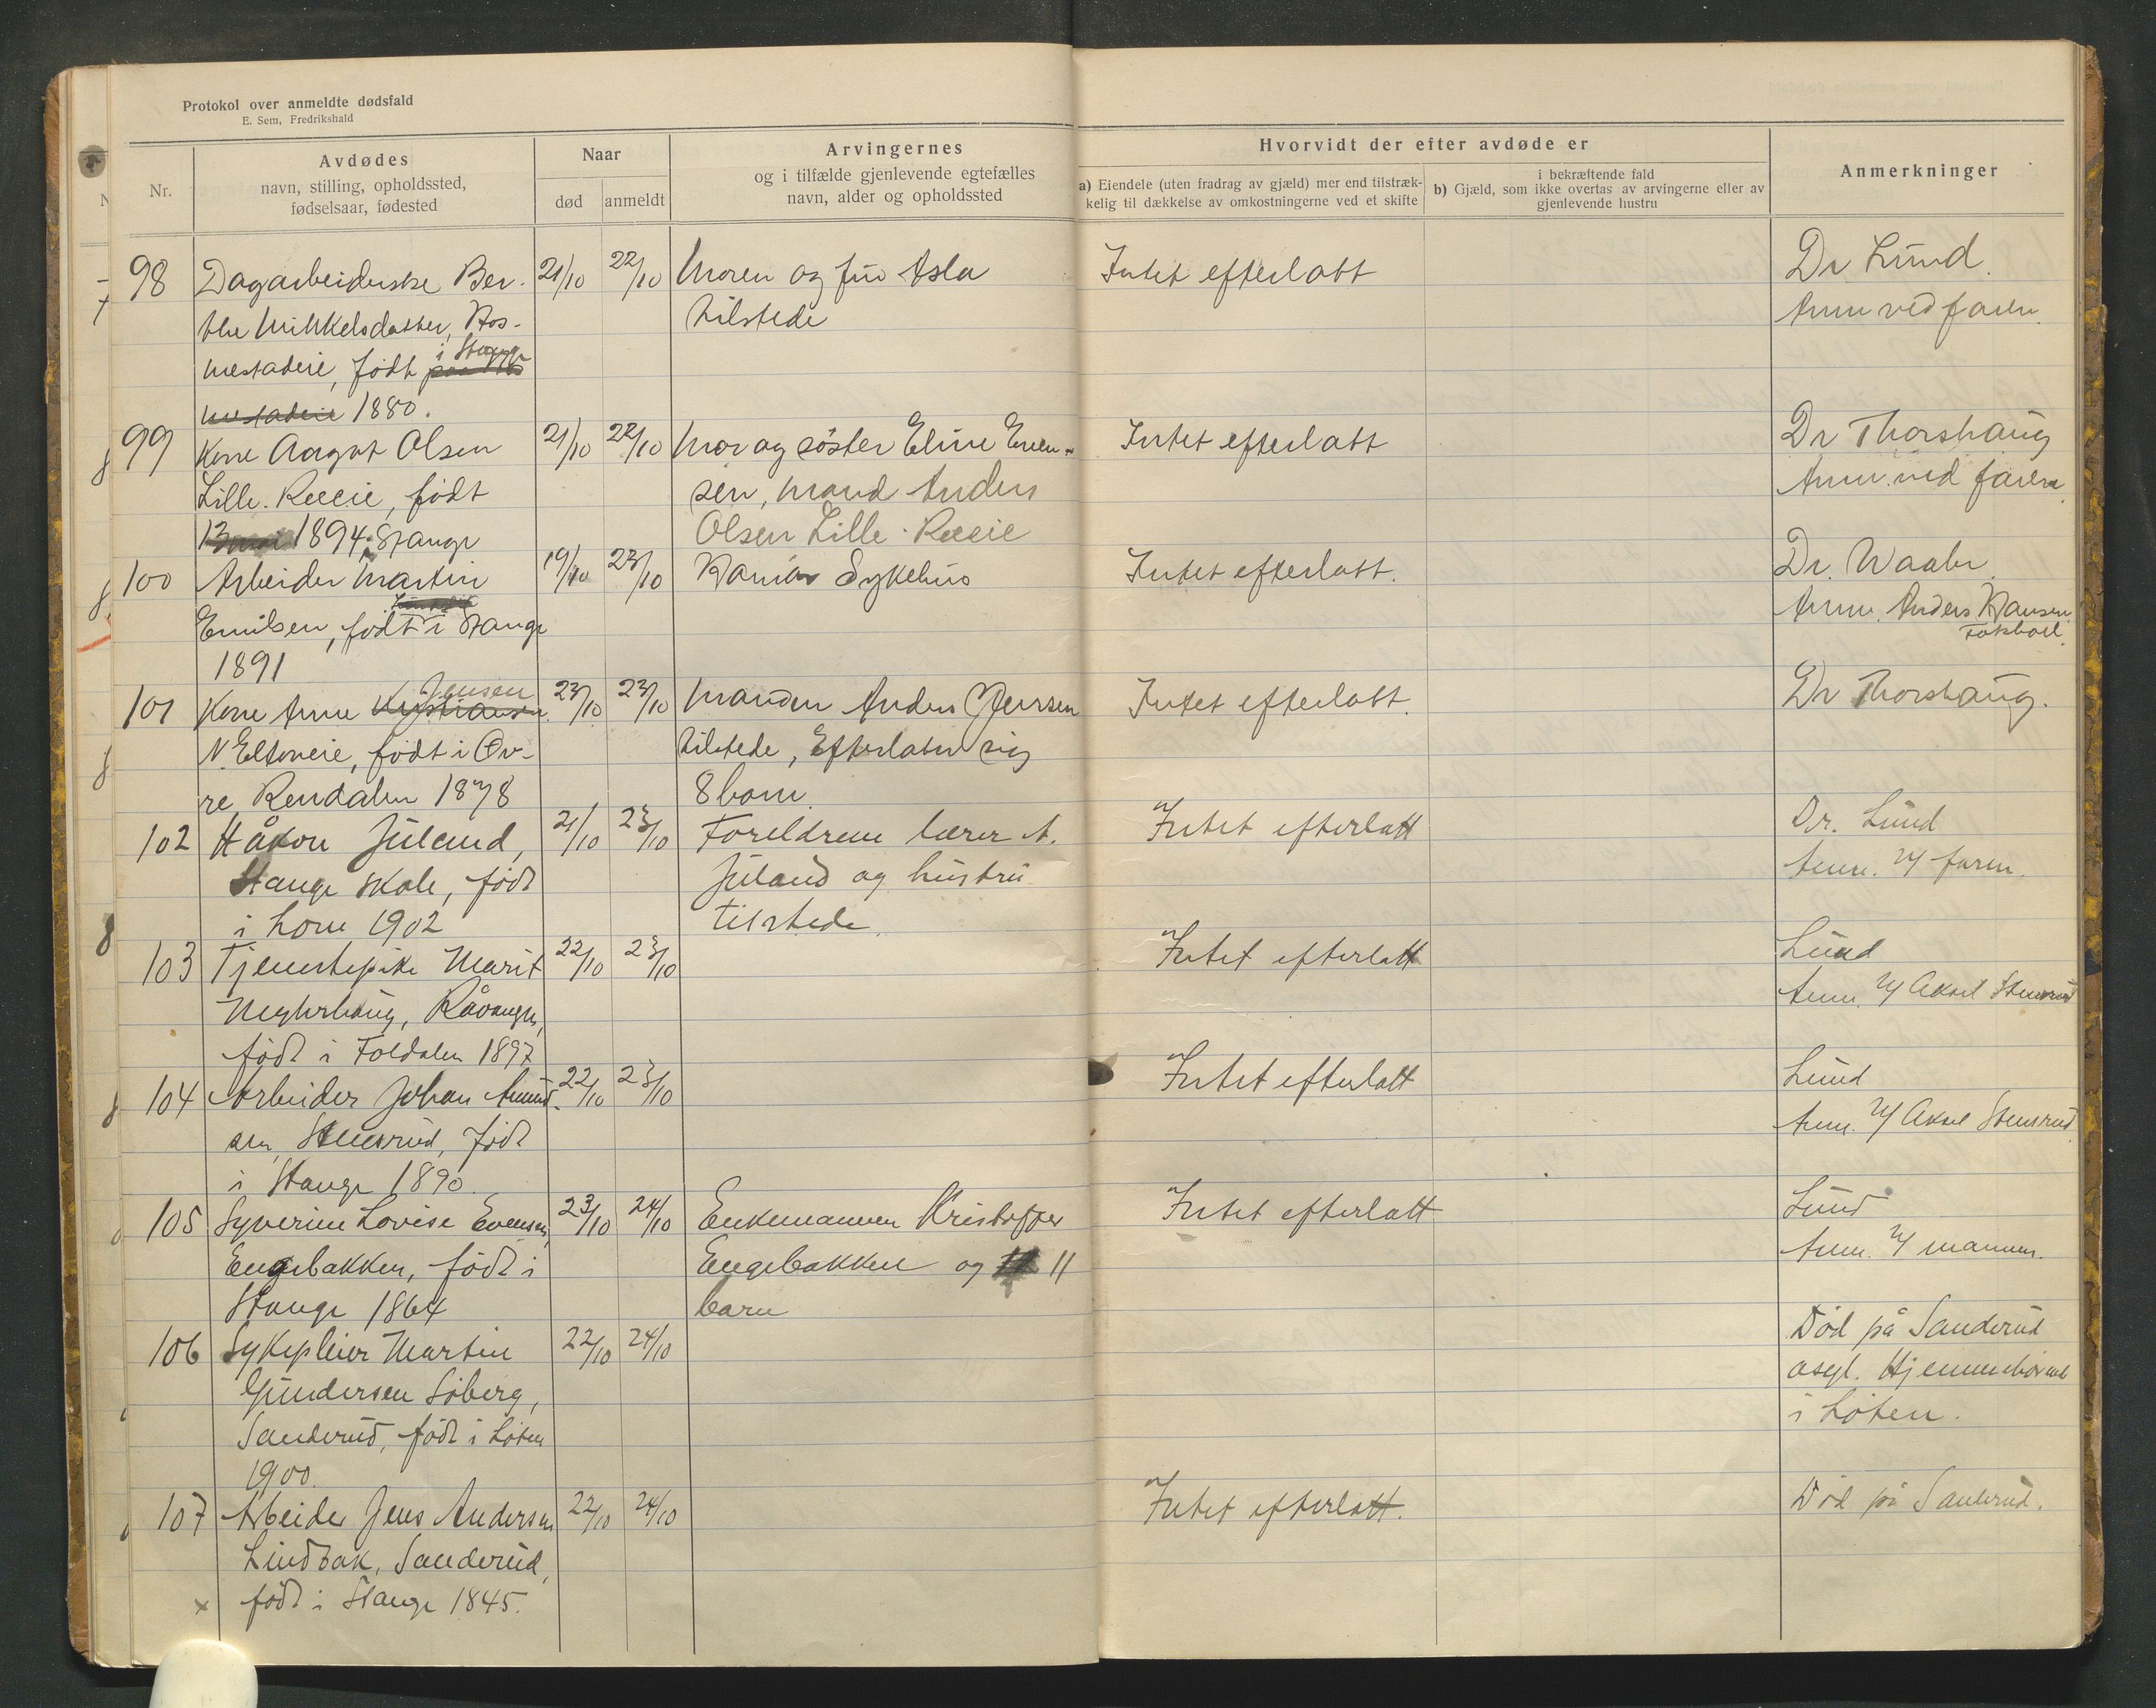 Protokol over anmeldte dødsfald
E. Sem, Fredrikshald
Nr.
Avdødes
navn, stilling, opholdssted,
fødselsaar, fødested
Naar
død
anmeldt
Arvingernes
og i tilfælde gjenlevende egtefælles
navn, alder og opholdssted
Hvorvidt der efter avdøde er
a) Eiendele (uten fradrag av gjæld) mer end tilstræk-
kelig til dækkelse av omkostningerne ved et skifte
i bekræftende fald
b) Gjæld, som ikke overtas av arvingerne eller av
gjenlevende hustru
Anmerkninger
98 Dagarbeiderske Ber- 21/10 22/10 Moren og Asla Intet efterlatt Dr Lund.
the Mikkelsdatter, Ros- tilstede Anm ved faren.
mestadeie, født i Stange
mestadeie 1880.
99 Kone Aagot Olsen 21/10 22/10 Mor og søster Eline Even- Intet efterlatt Dr Thorshaug
Lille-Reeeie, født sen, mand Anders Anm. ved faren
1894, Stange Olsen Lille-Reeeie
100 Arbeider Martin 19/10 23/10 Hamar Sykehus Intet efterlatt. Dr. Waaler
Emilsen, født i Stange Anm. Anders Hansen
1891 Fokhoel
101 Kone Anne Kristiansen Jensen 23/10 23/10 Manden Anders Jensen Intet efterlatt. Dr Thorshaug.
N. Eltoneie, født i Øv- tilstede, Efterlater sig
re Rendalen 1878 8 barn.
102 Håkon Juland, 21/10 23/10 Foreldrene lærer A. Intet efterlatt Dr. Lund
Stange skole, født Juland og hustru Anm. v/ faren.
i Lom 1902 tilstede.
103 Tjenestepike Marit 22/10 23/10 Intet efterlatt Lund
født i Foldalen 1897 Anm. v/ Aksel Stensrud
104 Arbeider Johan Amund- 22/10 23/10 Intet efterlatt Lund
sen, Stensrud, født Anm. v/ Aksel Stensrud
i Stange 1890.
105 Syverine Lovise Evensen, 23/10 24/10 Enkemannen Kristoffer Intet efterlatt Lund
Engebakken, født i Engebakken og 11 Anm. v/ mannen.
Stange 1864 barn
106 Sykepleier Martin 22/10 24/10 Død på Sanderud
Gundersen Söberg, asyl. Hjemmehørende
Sanderud, født i Löten i Löten.
1900.
107 Arbeider Jens Andersen 22/10 24/10 Intet efterlatt. Død på Sanderud.
Lindbak, Sanderud,
x født i Stange 1845.